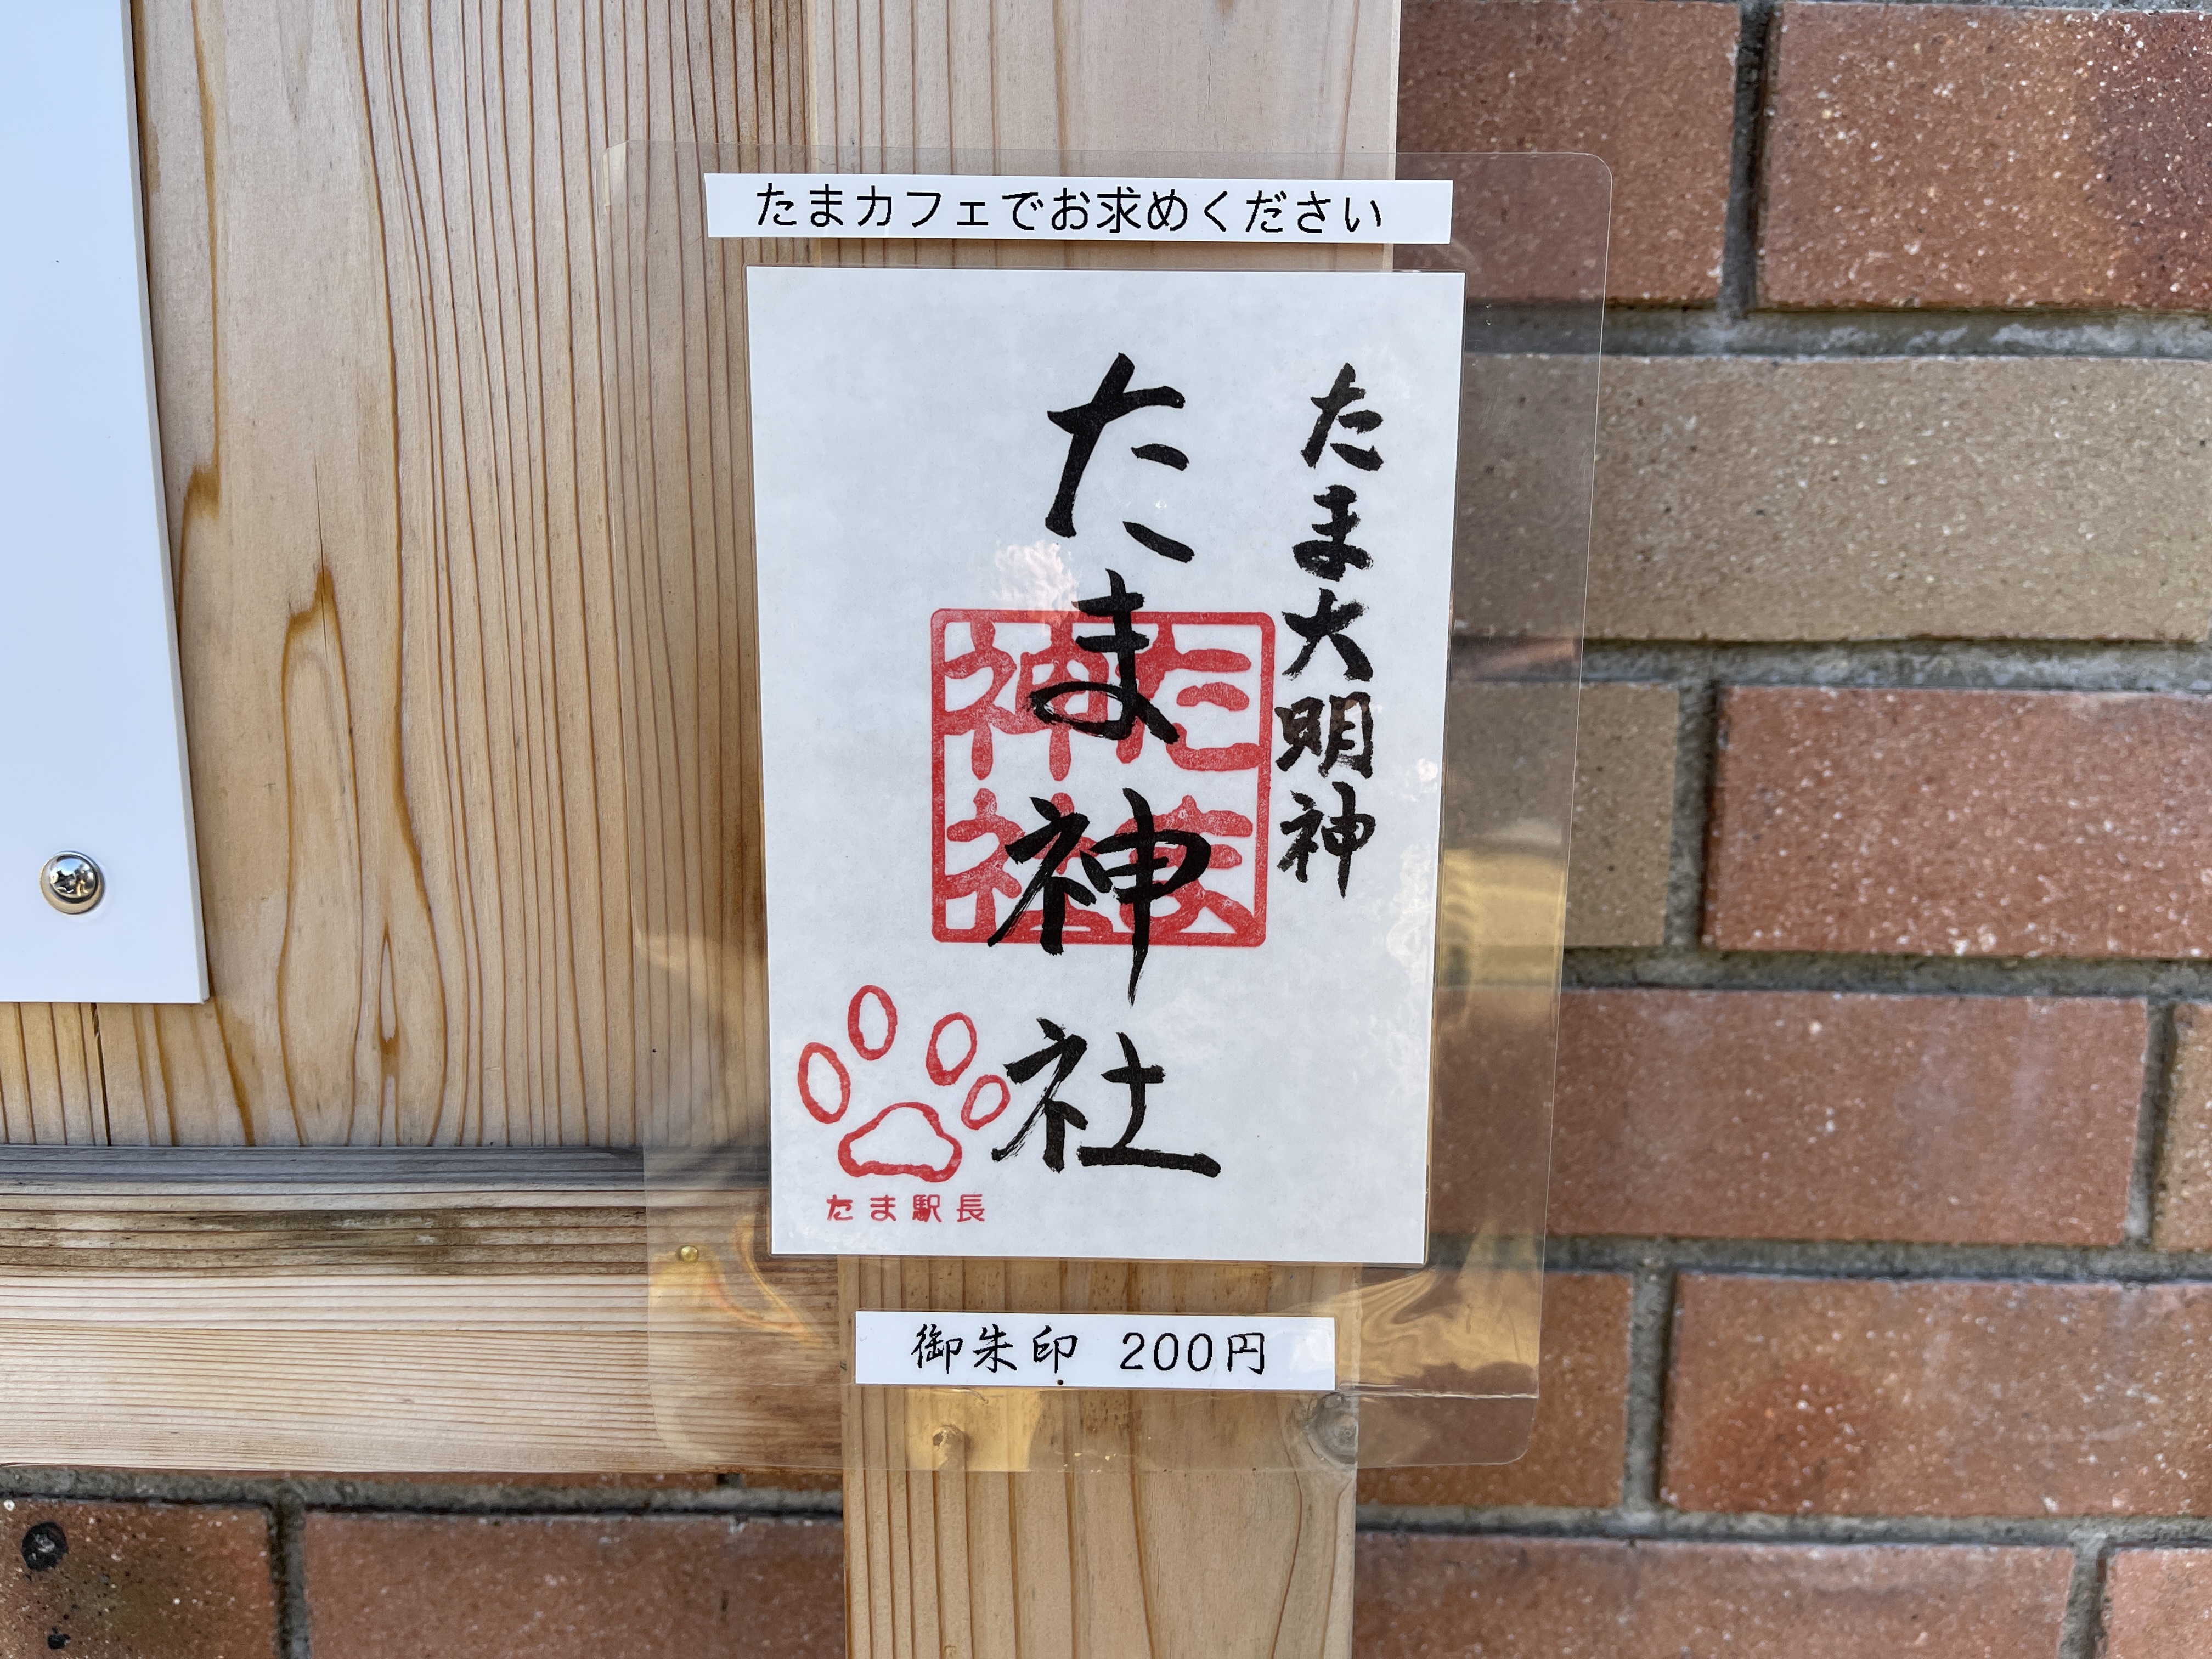 たまカフェでお求めください
たま大明神
たま神社
たま神社
たま駅長
御朱印 200円